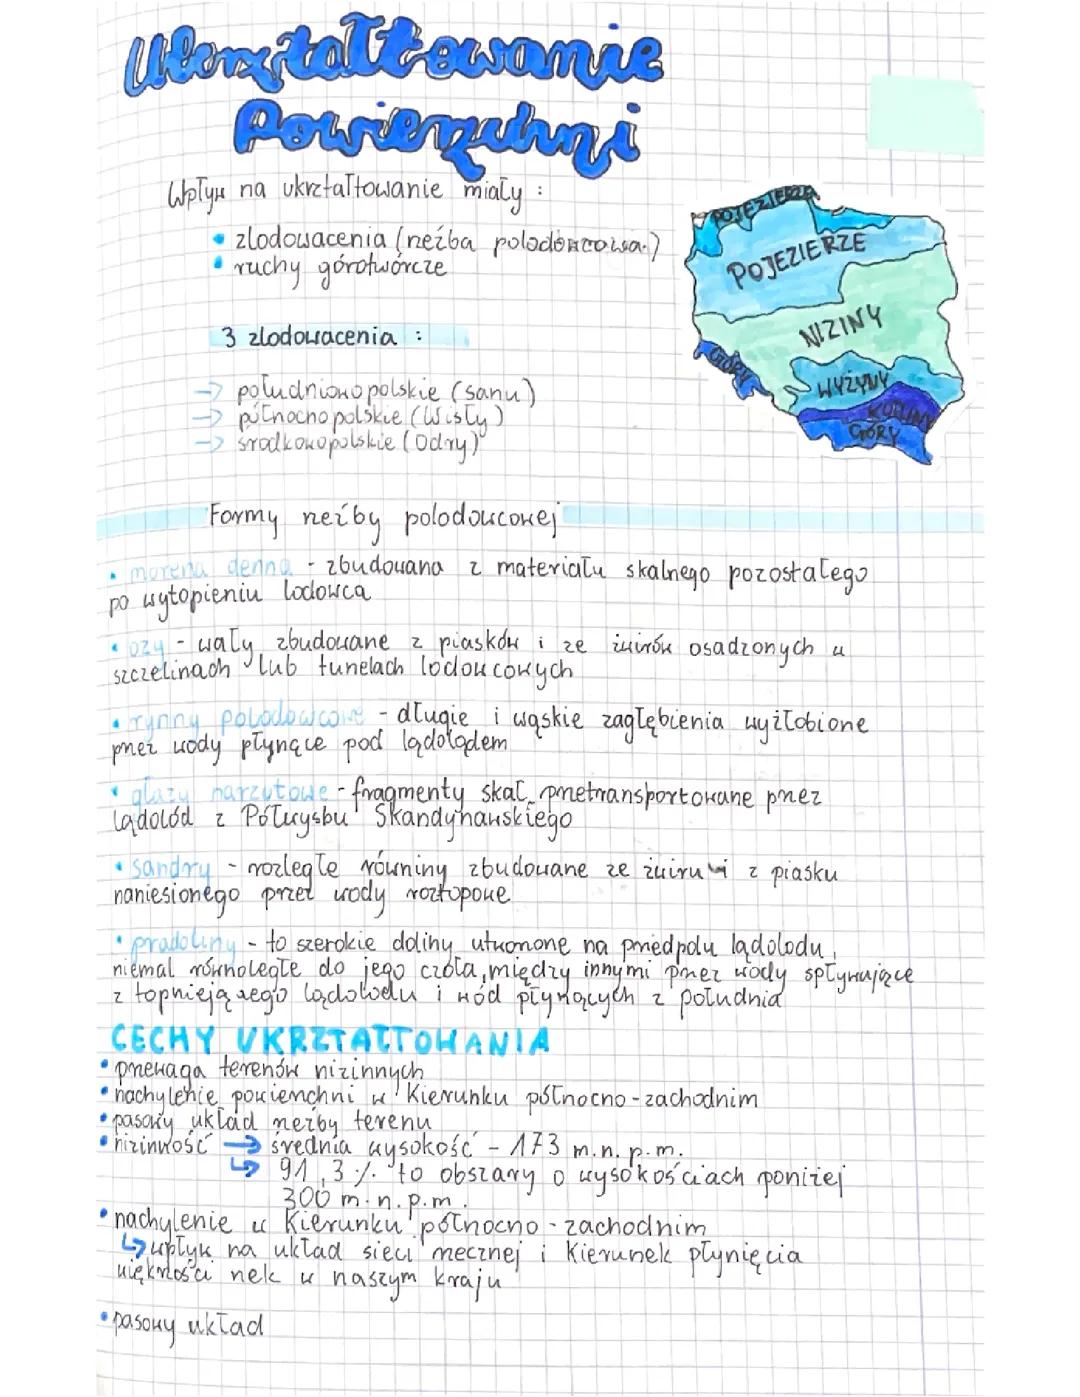 Ukształtowanie
Powierzchni
Wpływ na ukształtowanie miały :
• zlodowacenia (rzeźba polodowcowa.)
• ruchy górotwórcze
POJEZIERZA
POJEZIERZE
NIZINY
GÓRY
WYŻYNY
KOTLINY
GÓRY
3 zlodowacenia :
→ południowopolskie (sanu)
→ północnopolskie (Wisły)
→ środkowopolskie (Odry)
Formy rzeźby polodowcowej
• morena denna - zbudowana z materiału skalnego pozostałego
po wytopieniu lodowca
• ozy - wały zbudowane z piasków i ze żwirów osadzonych w
szczelinach lub tunelach lodowcowych
• rynny polodowcowe - długie i wąskie zagłębienia wyżłobione
przez wody płynące pod lądolądem
• głazy narzutowe - fragmenty skał przetransportowane przez
lądolód z Półwyspu Skandynawskiego
• sandry - rozległe równiny zbudowane ze żwiru i z piasku
naniesionego przez wody roztopowe
• pradoliny - to szerokie doliny utworzone na przedpolu lądolodu,
niemal równoległe do jego czoła, między innymi przez wody spływające
z topniejącego lądolodu i wód płynących z południa
CECHY UKRZTAŁTOWANIA
• przewaga terenów nizinnych
• nachylenie powierzchni w kierunku północno-zachodnim
• pasowy układ rzeźby terenu
• nizinność → średnia wysokość - 173 m.n.p.m.
↳ 91,3 % to obszary o wysokościach poniżej
300 m.n.p.m.
• nachylenie w kierunku północno-zachodnim
↳ wpływ na układ sieci rzecznej i kierunek płynięcia
większości rzek w naszym kraju
• pasowy układ